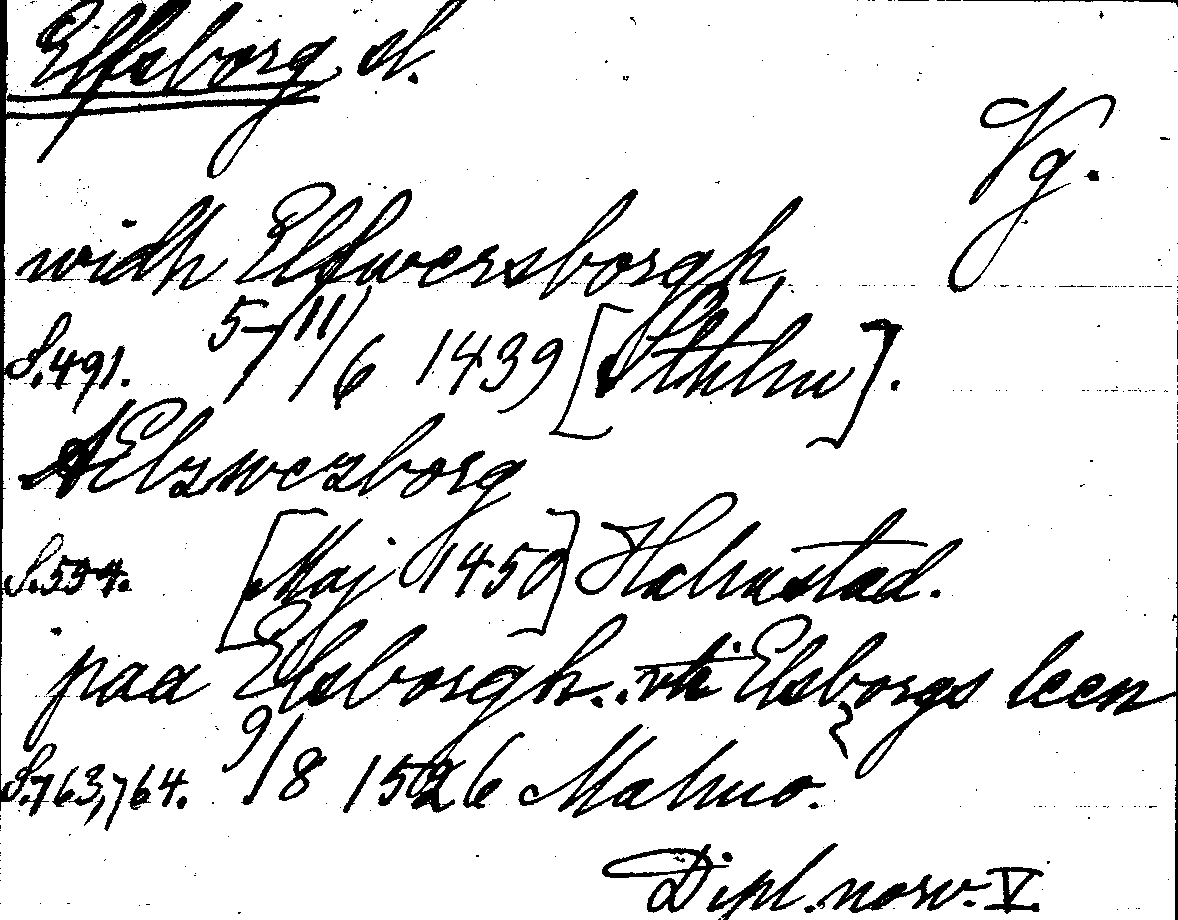 Elfsborg sl.
Vg.
widh Elfwersborgh
S.491. 5-/11/6 1439 [Sthlm].
AElzwerborg
S.554. [Maj 1450] Halmstad.
paa Elsborgh... vti Elsborgs leen
S.763,764. 9/8 1526 Malmø.
Dipl. norv. V.